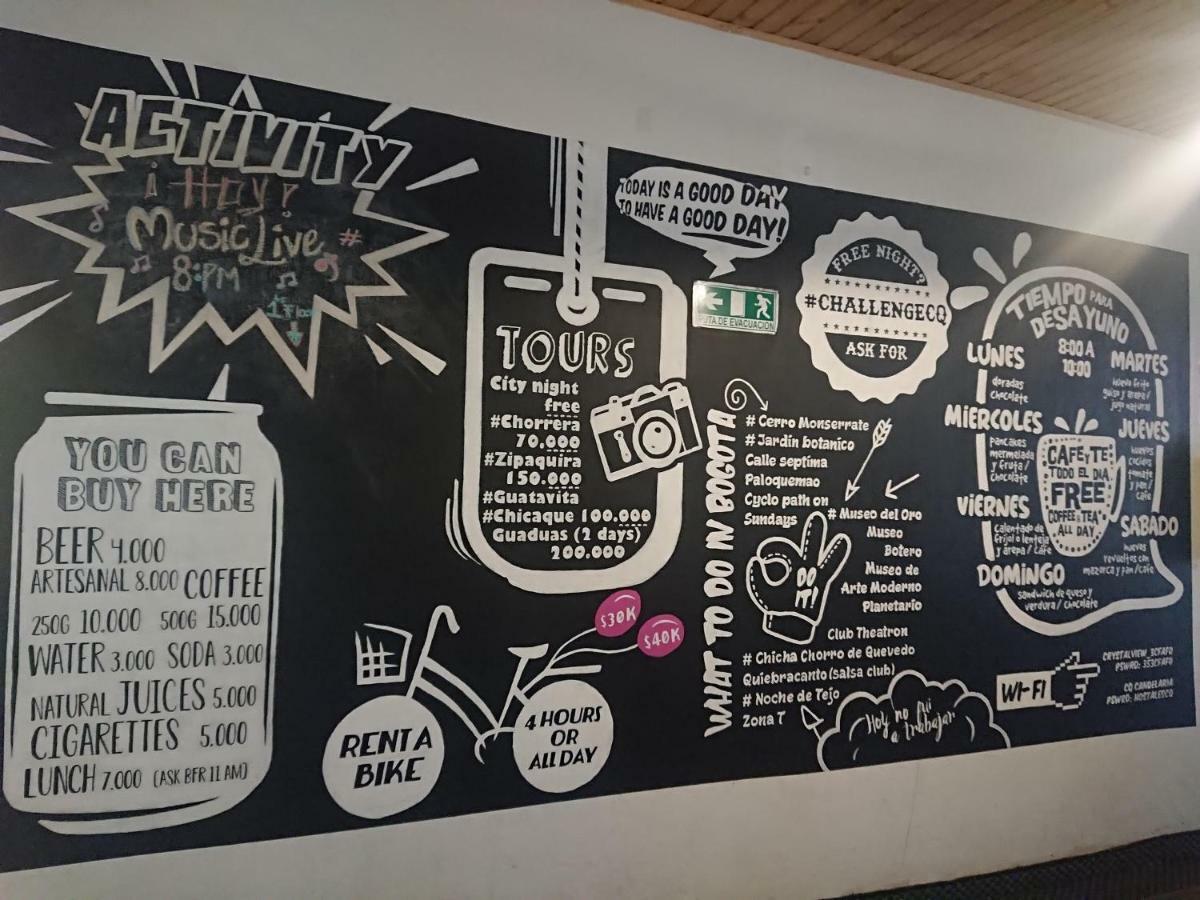 ACTIVITY
¡Hoy?
Music Live
8:PM
1 Floor
YOU CAN
BUY HERE
BEER 4.000
ARTESANAL 8.000 COFFEE
250G 10.000 500G 15.000
WATER 3.000 SODA 3.000
NATURAL JUICES 5.000
CIGARETTES 5.000
LUNCH 7.000 (ASK BFR 11 AM)
TOURS
City night
free
#Chorrera
70.000
#Zipaquira
150.000
#Guatavita
#Chicaque 100.000
Guaduas (2 days)
200.000
RENT A
BIKE
4 HOURS
OR
ALL DAY
$30K
$40K
TODAY IS A GOOD DAY
TO HAVE A GOOD DAY!
RUTA DE EVACUACIÓN
FREE NIGHT?
#CHALLENGECQ
ASK FOR
WHAT TO DO IN BOGOTA
# Cerro Monserrate
# Jardín botanico
Calle septima
Paloquemao
Cyclo path on
Sundays
# Museo del Oro
Museo
Botero
Museo de
Arte Moderno
Planetario
DO
IT!
Club Theatron
# Chicha Chorro de Quevedo
Quiebracanto (salsa club)
# Noche de Tejo
Zona T
Hoy no fui
a trabajar
TIEMPO PARA
DESAYUNO
8:00 A
10:00
LUNES
doradas
chocolate
MARTES
huevo frito
guiso y arepa/
jugo natural
MIERCOLES
pancakes
mermelada
y fruta/
chocolate
JUEVES
huevos
cocidos
tomate
y pan/
café
VIERNES
Calentado de
frijol o lenteja
y arepa / Café
SABADO
huevos
revueltos con
mazorca y pan /café
DOMINGO
sandwich de queso y
verdura/ chocolate
CAFE Y TE
TODO EL DIA
FREE
COFFEE & TEA
ALL DAY
WI-FI
CRYSTALVIEW_3CFAF0
PSWRD: 353CFAF0
CQ CANDELARIA
PSWRD: HOSTALESCQ